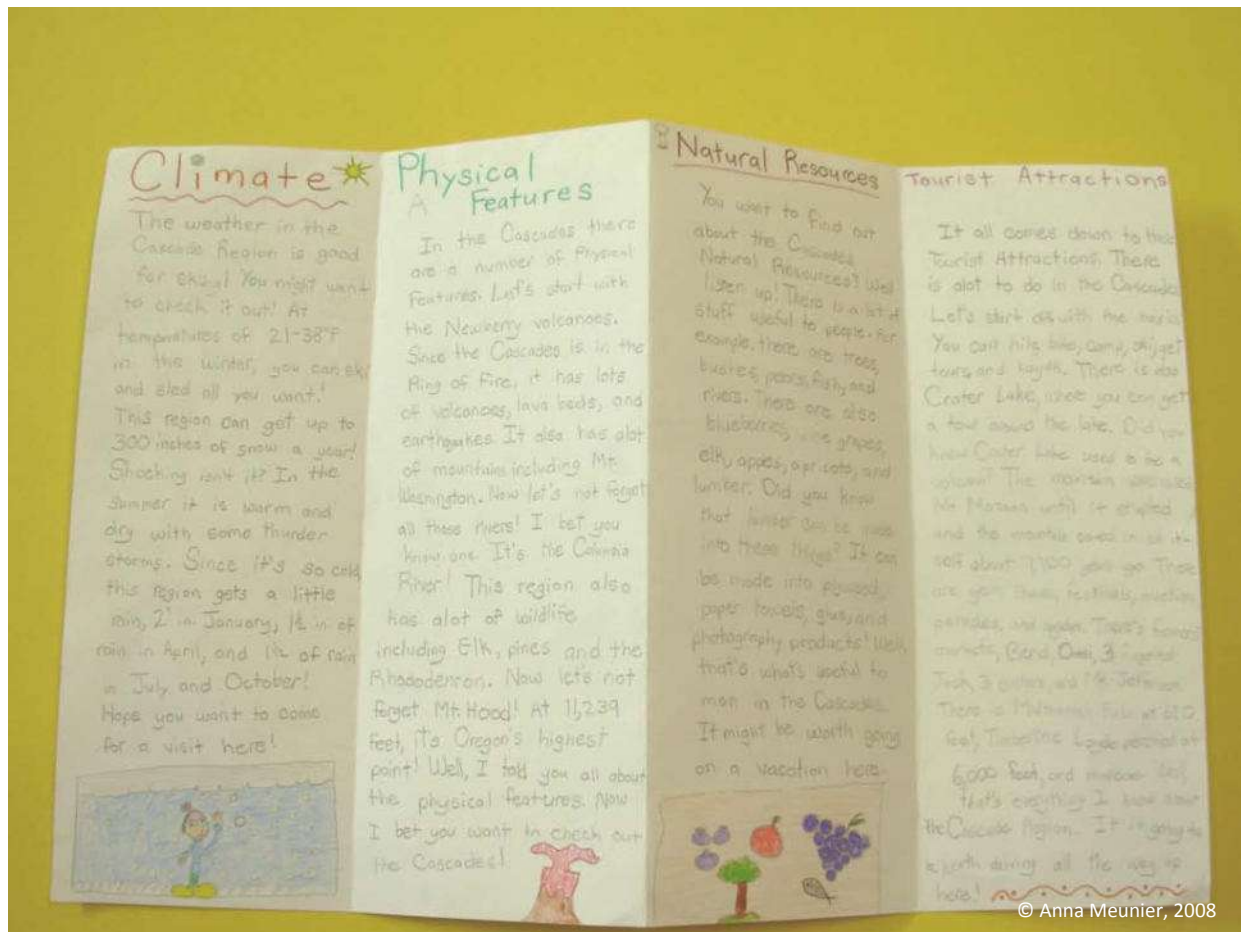 Climate
The weather in the
Cascade Region is good
for skiing! You might want
to check it out! At
temperatures of 21-38°F
in the winter, you can ski
and sled all you want!
This region can get up to
300 inches of snow a year!
Shocking isn't it? In the
summer it is warm and
dry with some thunder
storms. Since it's so cold,
this region gets a little
rain, 2 in January, 1½ in of
rain in April, and 1½ of rain
in July and October!
Hope you want to come
for a visit here!
Physical
Features
In the Cascades there
are a number of Physical
Features. Let's start with
the Newberry volcanoes.
Since the Cascades is in the
Ring of Fire, it has lots
of volcanoes, lava beds, and
earthquakes. It also has alot
of mountains including Mt.
Washington. Now let's not forget
all those rivers! I bet you
know one. It's the Columbia
River! This region also
has alot of wildlife
including Elk, pines and the
Now let's not
forget Mt. Hood! At 11,239
feet, it's Oregon's highest
point! Well, I told you all about
the physical features. Now
I bet you want to check out
the Cascades!
Natural Resources
You want to find out
about the Cascades
Natural Resources? Well
listen up! There is a lot of
stuff useful to people. For
example, there are trees,
bushes, pears, fish, and
rivers. There are also
blueberries, grapes,
elk, apples, apricots, and
lumber. Did you know
that lumber can be made
into these things? It can
be made into plywood,
paper towels, glue, and
photography products! Well,
that's what's useful to
man in the Cascades.
It might be worth going
on a vacation here.
Tourist Attractions
It all comes down to these
Tourist Attractions. There
is alot to do in the Cascades
Let's start off with the basics
You can hike, bike, camp, ski, get
tours, and kayak. There is also
Crater Lake, where you can get
a tour around the lake. Did you
know Crater Lake used to be a
volcano? The mountain was called
Mt Mazama until it erupted
and the mountain caved in on it
self about 7,700 years go. There
are festivals,
parades, and
markets, Bend, 3
3 sisters, and Mt. Jefferson
There is Multnomah Falls at
feet, Timberline Lodge at
6,000 feet, and
that's everything I know about
the Cascade Region. It is going to
worth driving all the way up
here!
© Anna Meunier, 2008